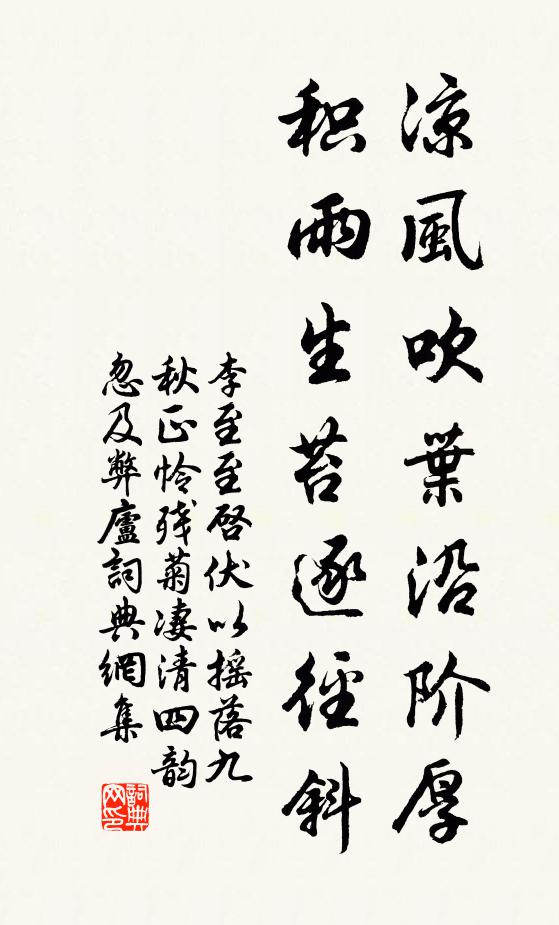 涼風吹葉沿阶厚
积雨生苔逐徑斜
李至至啓伏以搖落九
秋正怜残菊凄清四韵
忽及弊廬詞典網集
詞典网印